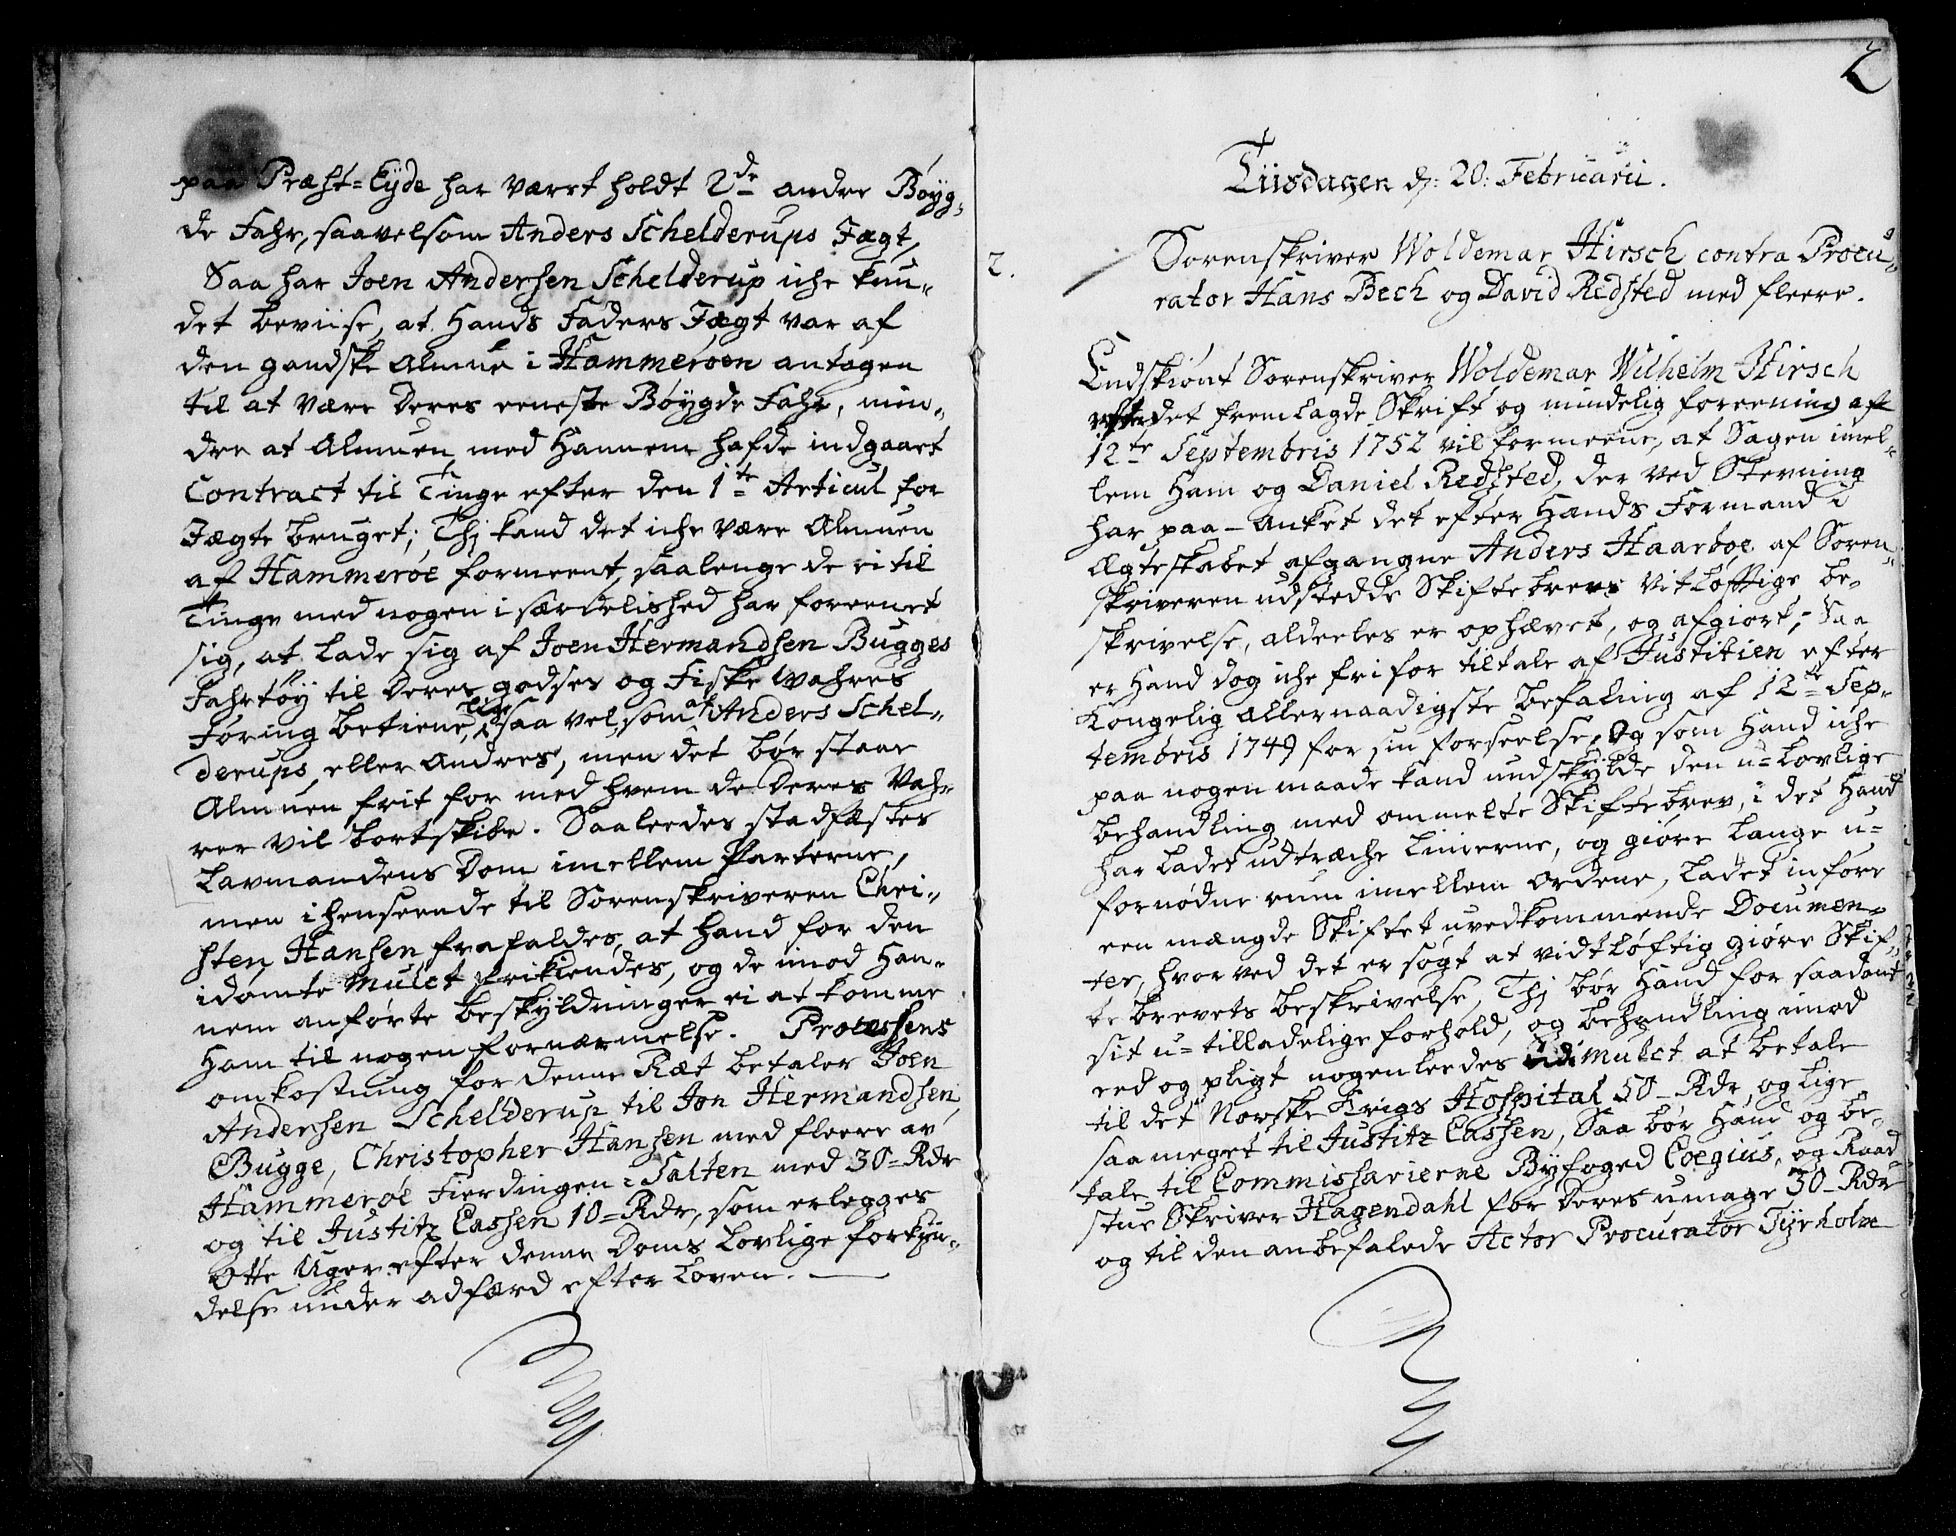 paa Præst=Eyde har været holdt 2de andre Bøyg-
de Fahr, saavelsom Anders Schelderups Jægt,
Saa har Joen Andersen Schelderup iche kun-
det beviise, at Hands Faders Jægt var af
den gandske Almue i Hammerøen antagen
til at være Deres eeneste Bøygde Fahr, min-
dre at Almuen med Hannem hafde indgaaet
Contract til Tinge efter den 1te Articul for
Jægte bruget; Thj kand det iche være Almuen
af Hammerøe formeent, saalenge de ei til
Tinge med nogen i særdelished har foreenet
sig, at lade sig af Joen Hermandsen Bugges
Fahrtøy til Deres godses og Fiske Wahres
Føring betiene, lige saa vel, som af Anders Schel-
derups, eller Andres, men det bør staae
Almuen frit for med hvem de Deres Vah-
rer vil bortskibe. Saaleedes stadfæstes
Lavmandens Dom imellem Parterne,
men i henseende til Sorenskriveren Chri-
sten Hansen, frafaldes, at hand for den
idømte Mulct frikiendes, og de imod Han-
nem anførte beskyldninger ei at komme
Ham til nogen fornærmelse. Processens
omkostning for denne Ræt betaler Joen
Andersen Schelderup til Jon Hermandsen
Bugge, Christopher Hansen med fleere av
Hammerøe Fierdingen i Salten med 30 = Rdr
og til Justitz Cassen 10 = Rdr, som erlegges
Otte Uger efter denne Doms Lovlige forkyn-
delse under adfærd efter Loven.
2
Tiisdagen d: 20: Februarii.
2.
Sorenskriver Woldemar Hirsch contra Procu-
rator Hans Bech og David Redsted med fleere.
Endskiønt Sorenskriver Woldemar Wilhelm Hirsch
efter det fremlagde Skrift og mindelig foreening af
12te Septembris 1752 vil formeene, at Sagen imel-
lem Ham og Daniel Redsted, der ved Stevning
har paa-anket det efter Hands Formand i
Ægteskabet afgangne Anders Haarboe af Soren-
skriveren udstedde Skiftebrevs vitløftige be-
skrivelse, aldeeles er ophævet, og afgiort; Saa
er Hand dog iche fri for tiltale af Justitien efter
Kongelig allernaadigste befaling af 12te Sep-
tembris 1749 for sin forseelse, Og som Hand iche
paa nogen maade kand undskylde den u=lovlige
behandling med ommelte Skiftebrev, i det Hand
har ladet udtræche Linierne, og giøre lange u=
fornødne rum imellem ordene, ladet inføre
een mængde Skiftet uvedkommende Documen-
ter, hvorved det er søgt at vidtløftig giøre Skif-
te brevets beskrivelse, Thj bør Hand for saadant
sit u=tilladelige forhold, og behandling imod
eed og pligt nogenleedes til mulct at betale
til det Norske Krigs Hospital 50 - Rdr, og lige
saa meget til Justitz Cassen, Saa bør Hand og be-
tale til Commissarierne Byfoged Coegius, og Raad-
stue Skriver Hagendahl for Deres umage 30 - Rdr
og til den anbefalede Actor Procurator Tyrholm